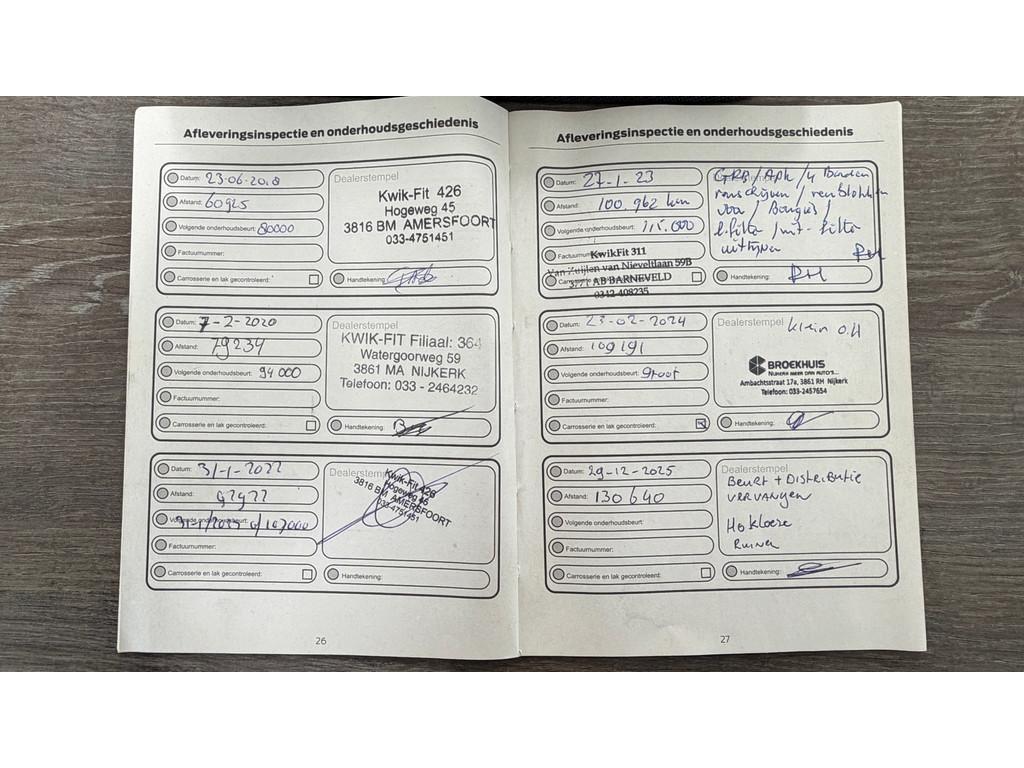 Afleveringsinspectie en onderhoudsgeschiedenis
Datum: 23-06-2018
Afstand: 60925
Volgende onderhoudsbeurt: 80000
Factuurnummer:
Carrosserie en lak gecontroleerd:
Dealerstempel
Kwik-Fit 426
Hogeweg 45
3816 BM AMERSFOORT
033-4751451
Handtekening:
Datum: 7-2-2020
Afstand: 79234
Volgende onderhoudsbeurt: 94000
Factuurnummer:
Carrosserie en lak gecontroleerd:
Dealerstempel
KWIK-FIT Filiaal: 364
Watergoorweg 59
3861 MA NIJKERK
Telefoon: 033 - 2464232
Handtekening:
Datum: 31-1-2022
Afstand:
Volgende onderhoudsbeurt:
Factuurnummer:
Carrosserie en lak gecontroleerd:
Dealerstempel
Kwik-Fit 426
Hogeweg 45
3816 BM AMERSFOORT
033-4751451
Handtekening:
26
Afleveringsinspectie en onderhoudsgeschiedenis
Datum: 27-1-23
Afstand: 100.962 km
Volgende onderhoudsbeurt: 115.000
Factuurnummer:
KwikFit 311
Van Zuijlen van Nieveltlaan 59B
3771 AB BARNEVELD
0342-408235
Dealerstempel
GRB / Apk / 4 Banden
remschijven / remblokken
voor / Bougies /
l.filter / int- filter
uitlijnen
RH
Handtekening: RH
Datum: 23-02-2024
Afstand: 109191
Volgende onderhoudsbeurt: groot
Factuurnummer:
Carrosserie en lak gecontroleerd:
Dealerstempel klein O.H
BROEKHUIS
NIJKERK MEER DAN AUTO'S...
Ambachtsstraat 17a, 3861 RH Nijkerk
Telefoon: 033-2457654
Handtekening:
Datum: 29-12-2025
Afstand: 130640
Volgende onderhoudsbeurt:
Factuurnummer:
Carrosserie en lak gecontroleerd:
Dealerstempel
BEURT + DISTRIBUTIE
VERVANGEN
Ruinen
Handtekening:
27